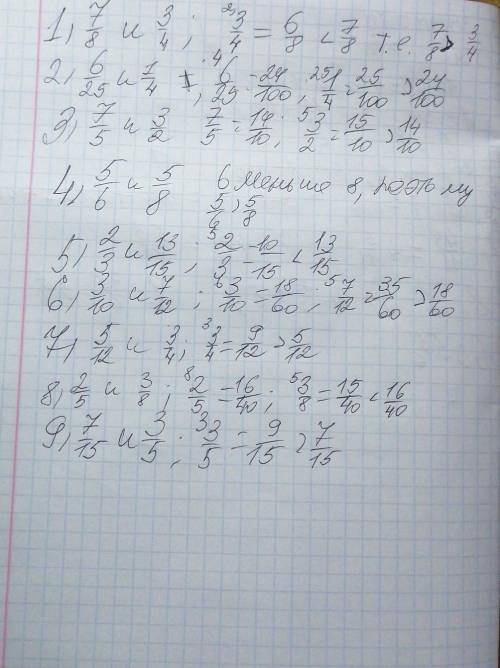 1) 7/8 и 3/4; ²⁾3/4 = 6/8 < 7/8 т.е. 7/8 > 3/4
2) 6/25 и 1/4; ⁴⁾6/25 = 24/100; ²⁵⁾1/4 = 25/100 > 24/100
3) 7/5 и 3/2 7/5 = 14/10; ⁵3/2 = 15/10 > 14/10
4) 5/6 и 5/8 6 меньше 8, поэтому
5/6 > 5/8
5) 2/3 и 13/15; ⁵2/3 = 10/15 < 13/15
6) 3/10 и 7/12; ⁶3/10 = 18/60; ⁵7/12 = 35/60 > 18/60
7) 5/12 и 3/4; ³3/4 = 9/12 > 5/12
8) 2/5 и 3/8; ⁸2/5 = 16/40; ⁵3/8 = 15/40 < 16/40
9) 7/15 и 3/5; ³3/5 = 9/15 > 7/15